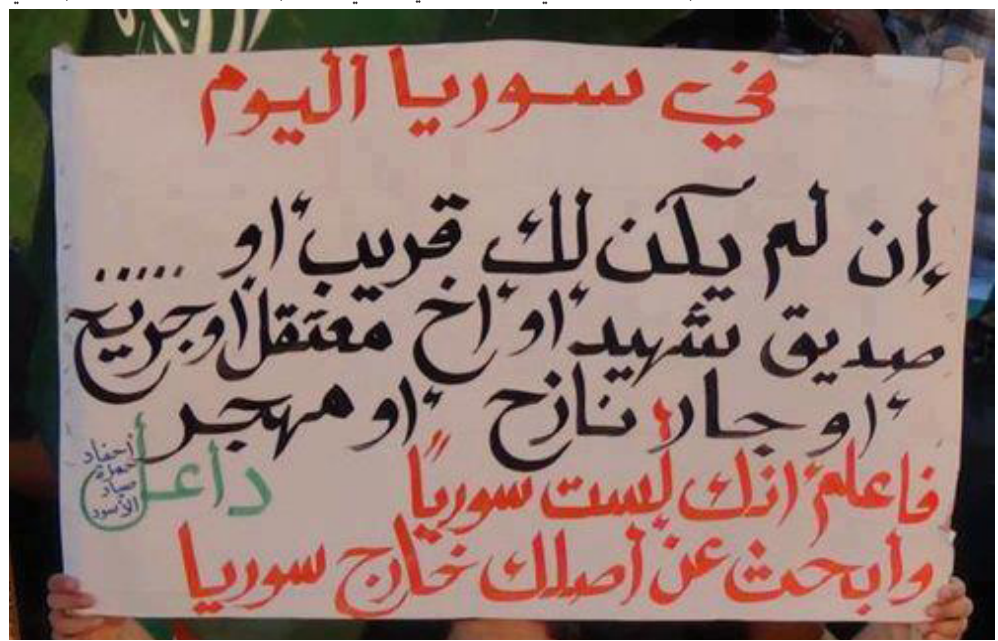 في سوريا اليوم
إن لم يكن لك قريب أو .....
صديق شهيد أو أخ معتقل أو جريح
أو جار نازح أو مهجر
فاعلم أنك لست سورياً
وابحث عن أصلك خارج سوريا
داعل
أحفاد
حمزة
صياد
الأسود